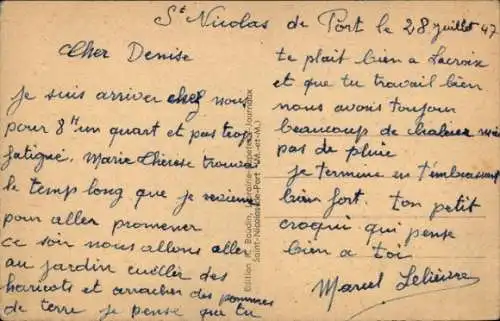 St Nicolas de Port le 28 juillet 47
Cher Denise
Je suis arriver chez nous
pour 8H un quart et pas trop
fatigué. Marie Thérèse trouvée
le temp long que je revienne
pour aller promener
ce soir nous allons aller
au jardin cuëller des
haricots et arracher des pommes
de terre je pense que tu
te plait bien a Lacroix
et que tu travail bien
nous avons toujour
beaucoup de chaleur mais
pas de pluie
je termine en t'embrassant
bien fort. ton petit
croqui qui pense
bien a toi
Marcel Lelièvre
Edition Baudin, Librairie-Papeterie-Journaux
Saint-Nicolas-de-Port (M.-et-M.)